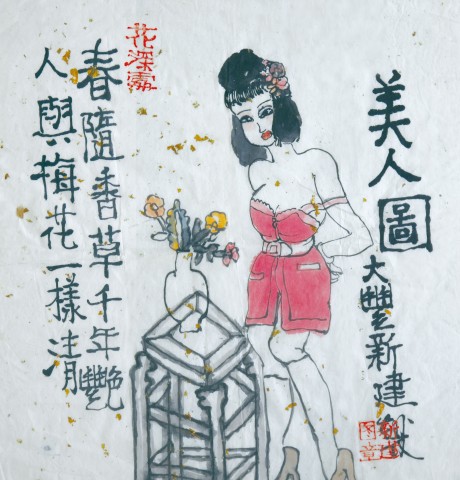 美人圖
大豐新建戲
新建
图章
花深
春隨香草千年艷
人與梅花一樣清